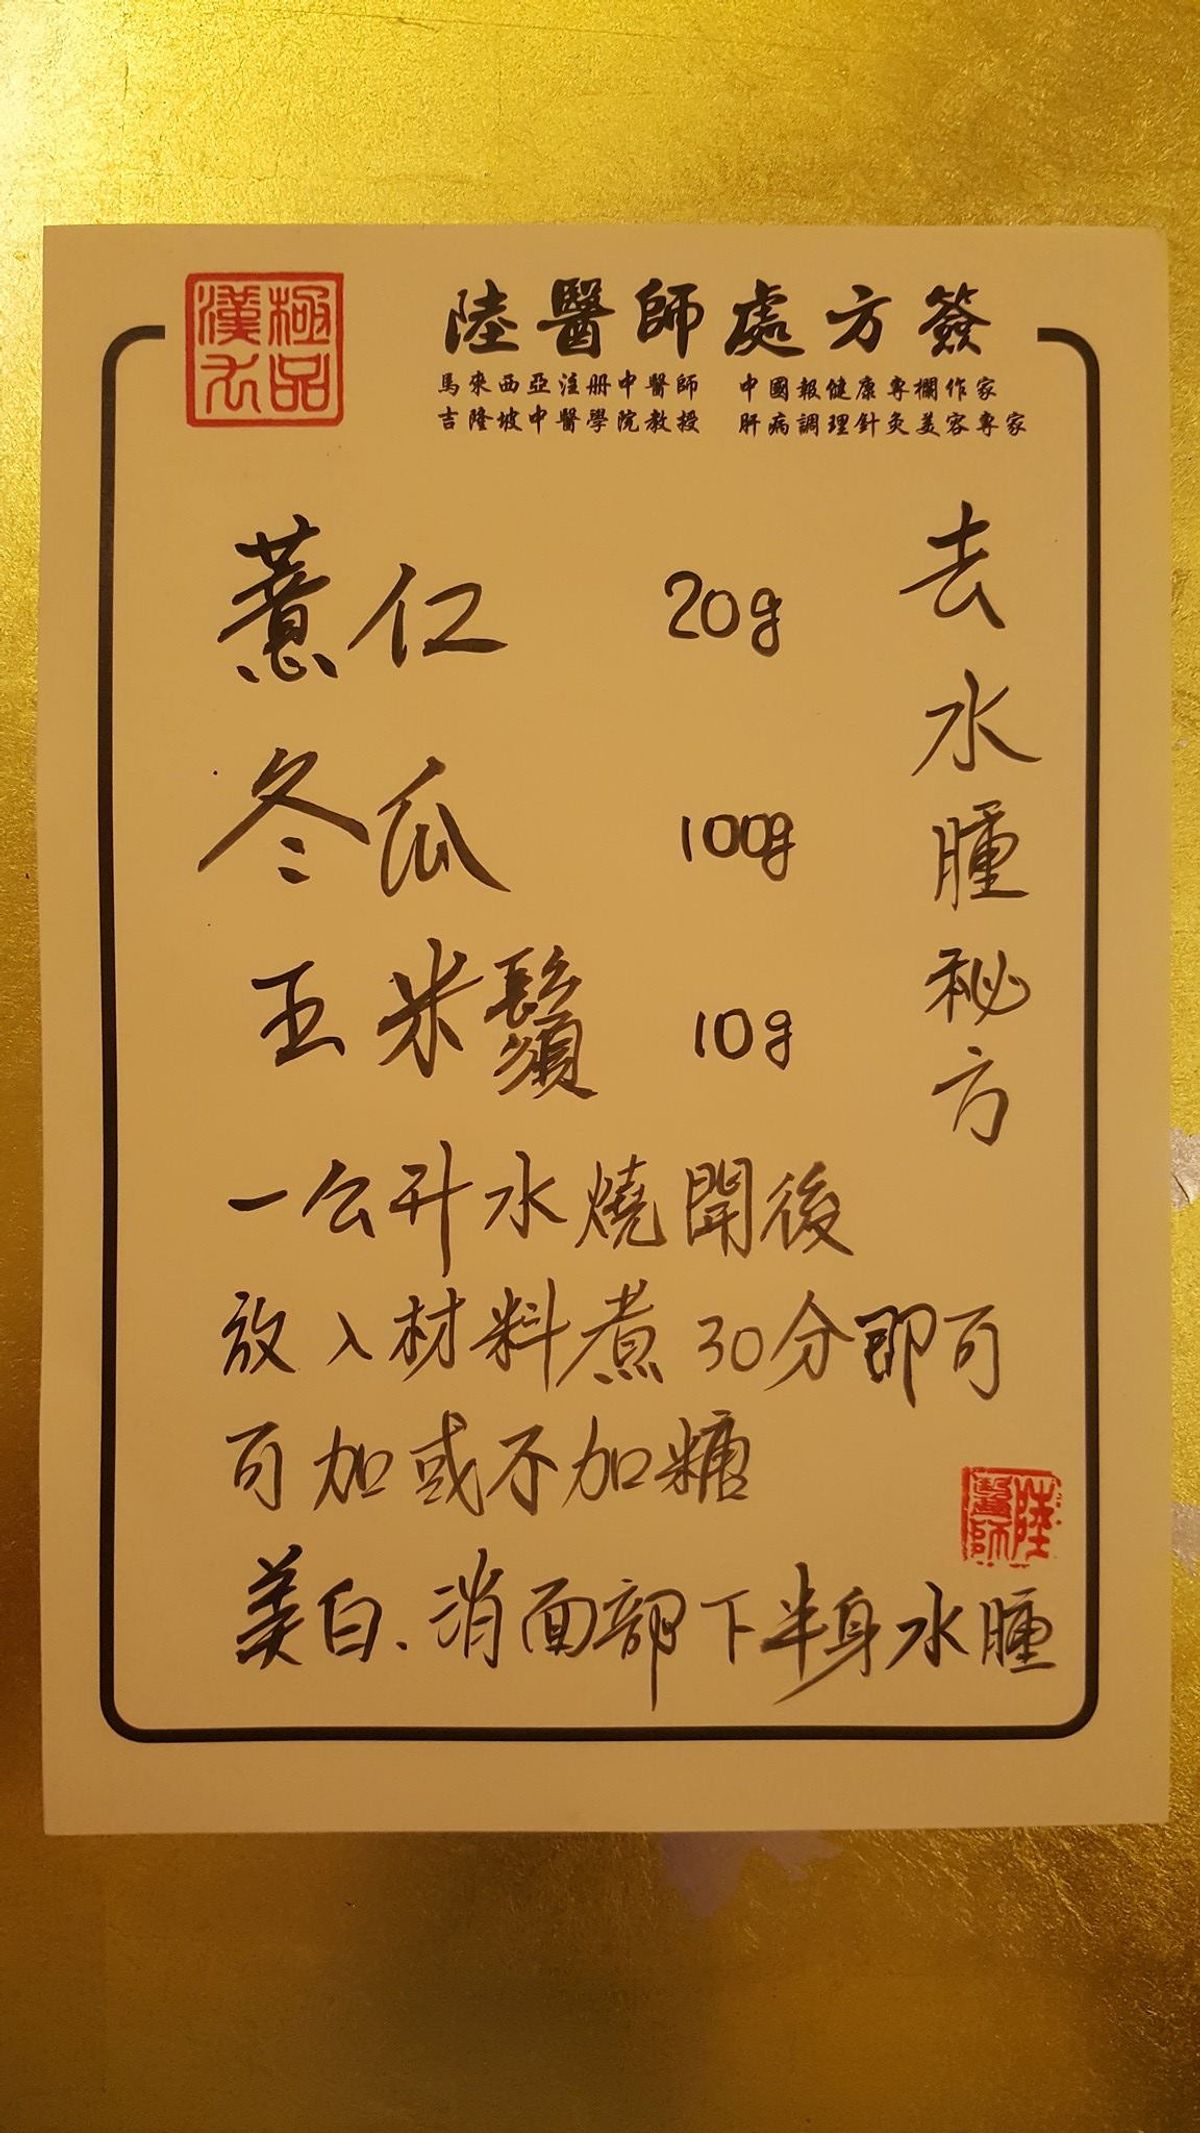 極品漢方
陸醫師處方簽
馬來西亞注册中醫師 中國報健康專欄作家
吉隆坡中醫學院教授 肝病調理針灸美容專家
去水腫秘方
薏仁 20g
冬瓜 100g
玉米鬚 10g
一公升水燒開後
放入材料煮30分即可
可加或不加糖
美白、消面部下半身水腫
陸醫師